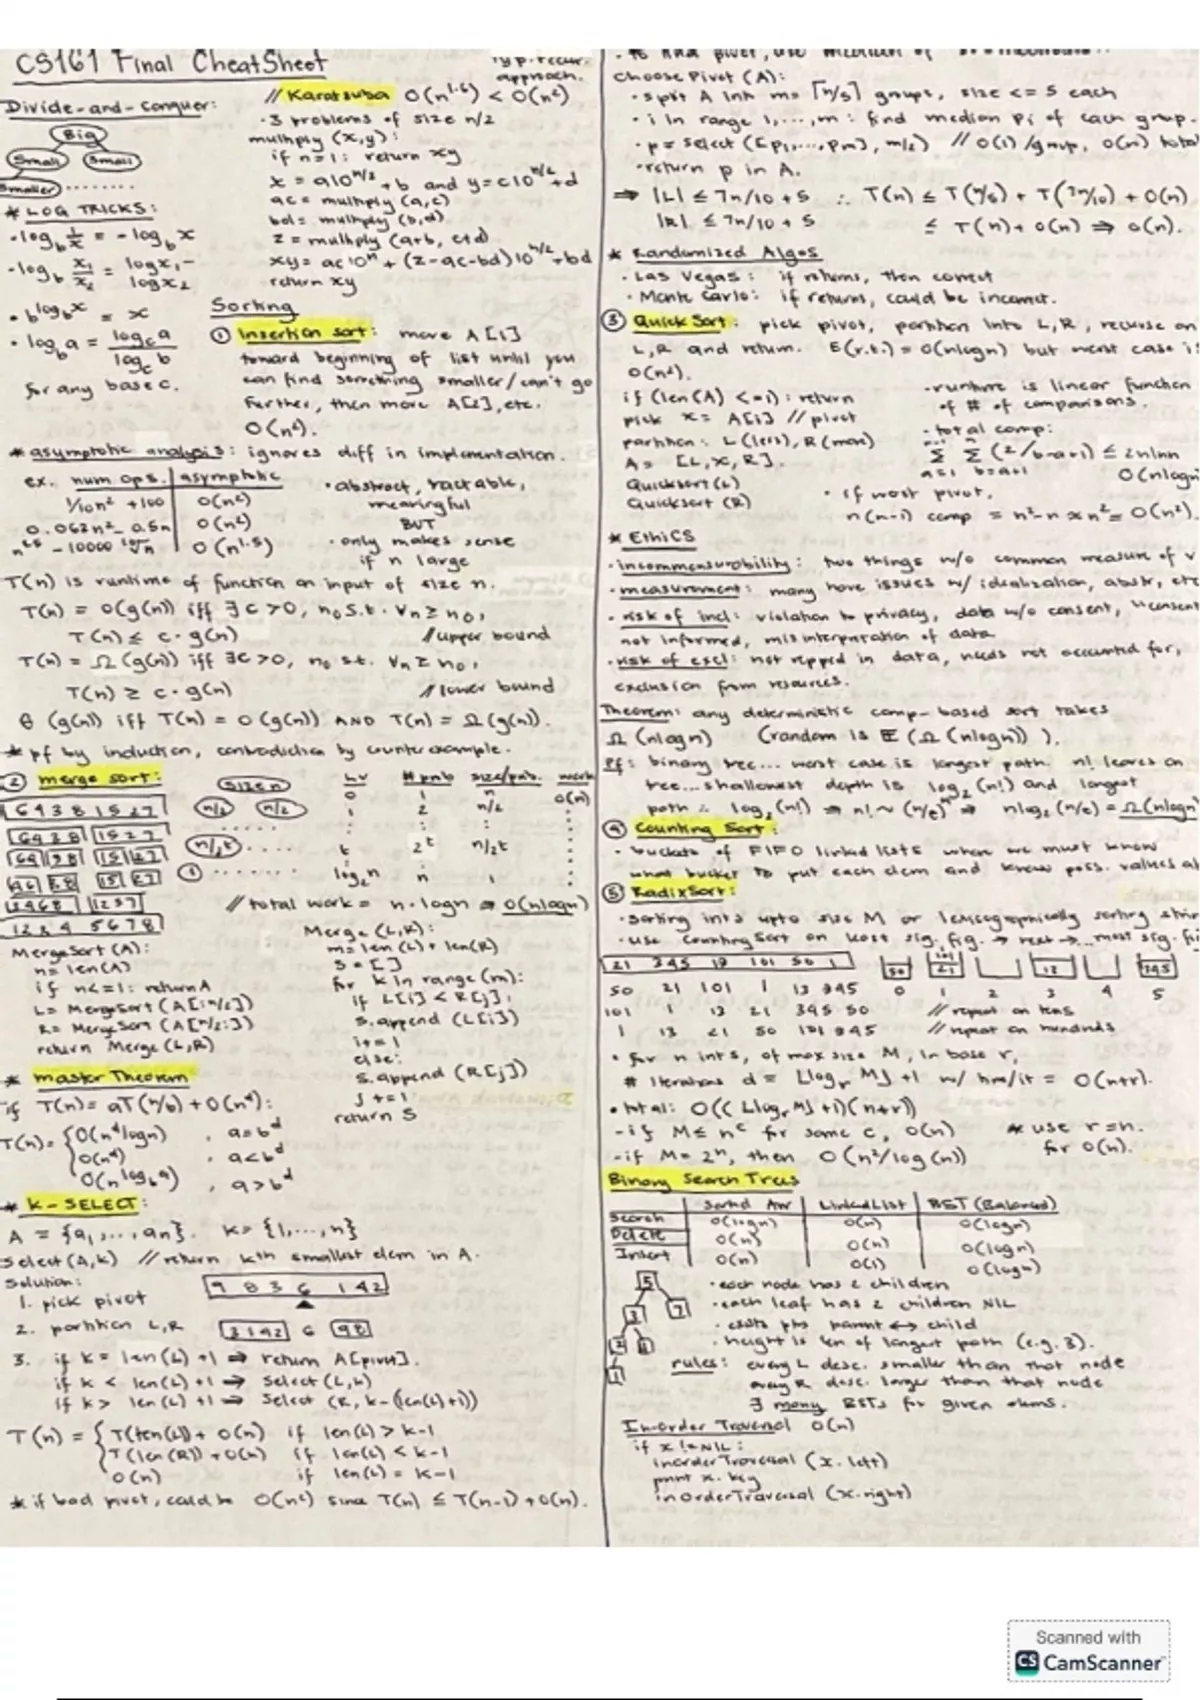 CS161 Final CheatSheet
Divide-and-conquer:
Big
Small Small
Smaller ........
* LOG TRICKS:
· log_b 1/x = -log_b x
· log_b x₁/x₂ = logx₁ - logx₂
· b^log_b x = x
· log_b a = log_c a / log_c b
for any base c.
typ. recur. approach.
// Karatsuba O(n^1.6) < O(n²)
· 3 problems of size n/2
multiply (x,y):
if n=1: return xy
x = a10^n/2 + b and y = c10^n/2 + d
ac = multiply (a,c)
bd = multiply (b,d)
z = multiply (a+b, c+d)
xy = ac10^n + (z-ac-bd)10^n/2 + bd
return xy
Sorting
① Insertion sort: move A[1]
toward beginning of list until you
can find something smaller/can't go
further, then move A[2], etc.
O(n²).
* asymptotic analysis: ignores diff in implementation.
ex. num ops. | asymptotic
1/10n² + 100 | O(n²)
0.063n² - 0.5n | O(n²)
- 10000 | O(n^1.5)
· abstract, tractable,
meaningful
BUT
· only makes sense
if n large
T(n) is runtime of function on input of size n.
T(n) = O(g(n)) iff ∃ c>0, n₀ s.t. ∀n ≥ n₀,
T(n) ≤ c·g(n) //upper bound
T(n) = Ω(g(n)) iff ∃c>0, n₀ st. ∀n ≥ n₀,
T(n) ≥ c·g(n) //lower bound
θ(g(n)) iff T(n) = O(g(n)) AND T(n) = Ω(g(n)).
* pf by induction, contradiction by counterexample.
② merge sort:
6 4 3 8 1 5 2 7
64 38 15 27
1 2 3 4 5 6 7 8
size n
n/2 n/2
n/2^t ....
① .......
Lv # pnb size/pnb. work
0 1 n O(n)
1 2 n/2
t 2^t n/2^t
log₂n n 1
// total work = n·logn ⇒ O(nlogn)
MergeSort(A):
n = len(A)
if n<=1: return A
L = MergeSort (A[:n/2])
R = MergeSort (A[n/2:])
return Merge (L,R)
Merge (L,R):
m = len(L) + len(R)
S = []
for k in range (m):
if L[i] < R[j]:
S.append (L[i])
i += 1
else:
S.append (R[j])
j += 1
return S
* master Theorem
if T(n) = aT(n/b) + O(n^d):
T(n) = { O(n^d logn) , a = b^d
O(n^d) , a < b^d
O(n^log_b a) , a > b^d
* K-SELECT:
A = {a₁, ..., an}. k = {1, ..., n}
Select (A,k) // return kth smallest elem in A.
Solution:
1. pick pivot
9 8 3 6 1 4 2
2. partition L,R
3142 6 98
3. if k = len(L) + 1 ⇒ return A[pivot].
if k < len(L) + 1 ⇒ Select (L,k)
if k > len(L) + 1 ⇒ Select (R, k-(len(L)+1))
T(n) = { T(len(L)) + O(n) if len(L) > k-1
T(len(R)) + O(n) if len(L) < k-1
O(n) if len(L) = k-1
* if bad pivot, could be O(n²) since T(n) ≤ T(n-1) + O(n).
· to find pivot, use median of
Choose Pivot (A):
· split A into m = ⌈n/5⌉ groups, size <= 5 each
· i in range 1, ..., m: find median pi of each group.
· p = select ([p₁, ..., pm], m/2) // O(1)/group, O(n) total
· return p in A.
⇒ |L| ≤ 7n/10 + 5 ∴ T(n) ≤ T(n/5) + T(7n/10) + O(n)
|R| ≤ 7n/10 + 5 ≤ T(n) + O(n) ⇒ O(n).
* Randomized Algos
· Las Vegas: if returns, then correct
· Monte Carlo: if returns, could be incorrect.
③ Quick Sort: pick pivot, partition into L,R, recurse on
L,R and return. E(r.t.) = O(nlogn) but worst case is
O(n²).
if (len(A) <= 1): return
pick x = A[i] // pivot
partition: L (less), R (more)
A = [L, x, R].
Quicksort (L)
Quicksort (R)
· runtime is linear function
of # of comparisons.
· total comp:
Σ Σ (2/b-a+1) ≤ 2nlnn
a=1 b=a+1 O(nlogn
· if worst pivot,
n(n-1) comp = n²-n ≈ n² = O(n²).
* Ethics
· incommensurability: two things w/o common measure of v
· measurement: many have issues w/ idealization, abstr, etc
· risk of incl: violation to privacy, data w/o consent, "consent
not informed, misinterpretation of data
· risk of excl: not repped in data, needs not accounted for,
exclusion from resources.
Theorem: any deterministic comp-based sort takes
Ω(nlogn) (random is E(Ω(nlogn))).
Pf: binary tree... worst case is longest path. n! leaves on
tree... shallowest depth is log₂(n!) and longest
path ∴ log₂(n!) ⇒ n! ~ (n/e)^n ⇒ nlog₂(n/e) = Ω(nlogn)
④ Counting Sort:
· buckets of FIFO linked lists where we must know
what bucket to put each elem and know poss. values a
⑤ RadixSort:
· sorting ints upto size M or lexicographically sorting strin
· use CountingSort on least sig. fig. → next → ... most sig. fi
21 345 13 101 50 1
50 101 21 13 345
50 21 101 1 13 345 0 1 2 3 4 5
101 1 13 21 345 50 // repeat on tens
1 13 21 50 101 345 // repeat on hundreds
· for n ints, of max size M, in base r,
# iterations d = ⌊log_r M⌋ + 1 w/ time/it = O(n+r).
· total: O((⌊log_r M⌋ + 1)(n+r))
- if M ≤ n^c for some c, O(n)
- if M = 2^n, then O(n²/log(n))
* use r=n.
for O(n).
Binary Search Trees
Sorted Arr | LinkedList | BST (Balanced)
Search O(logn) O(n) O(logn)
Delete O(n) O(n) O(logn)
Insert O(n) O(1) O(logn)
5
3 7
· each node has 2 children
· each leaf has 2 children NIL
· exists ptrs parent ↔ child
· height is len of longest path (e.g. 3).
rules: every L desc. smaller than that node
every R desc. larger than that node
∃ many BSTs for given elems.
In-order Traversal O(n)
if x != NIL:
inorderTraversal (x.left)
print x.key
inOrderTraversal (x.right)
Scanned with
CS CamScanner